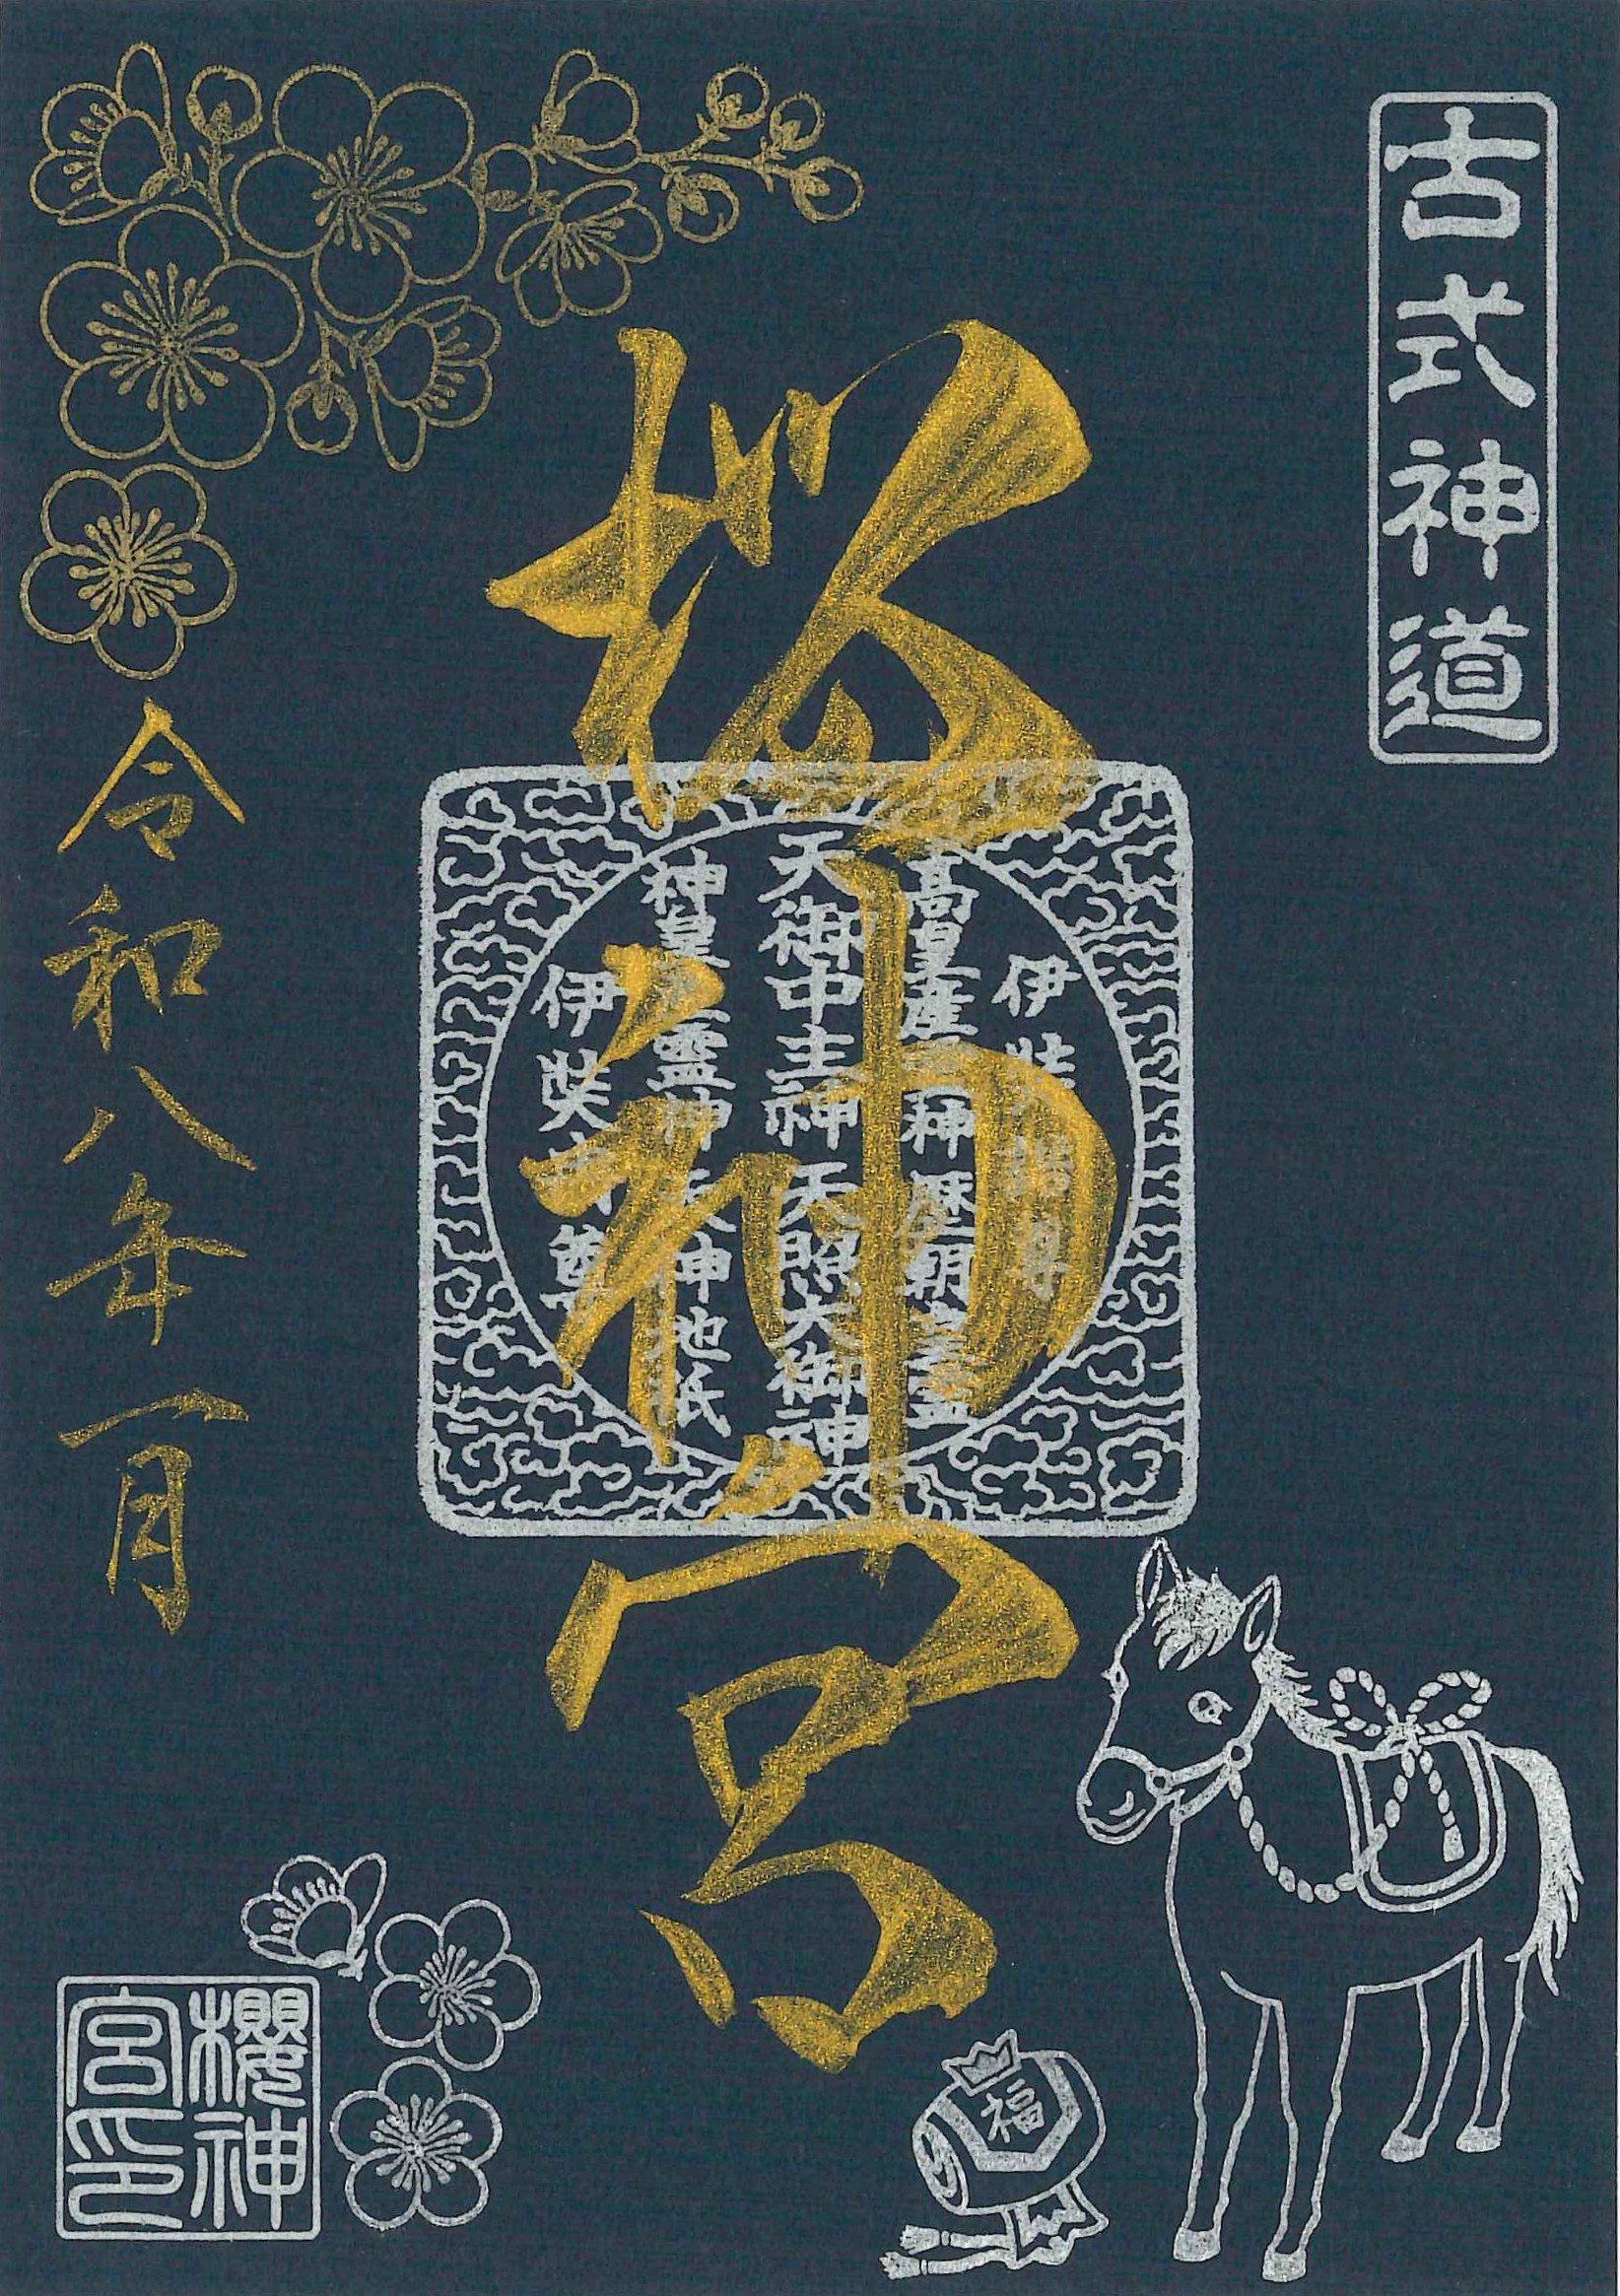 古式神道
桜神宮
伊弉諾尊
高皇産霊神 歴朝皇霊
天御中主神 天照大御神
神皇産霊神 天神地祇
伊弉冉尊
令和八年一月
福
櫻神宮印